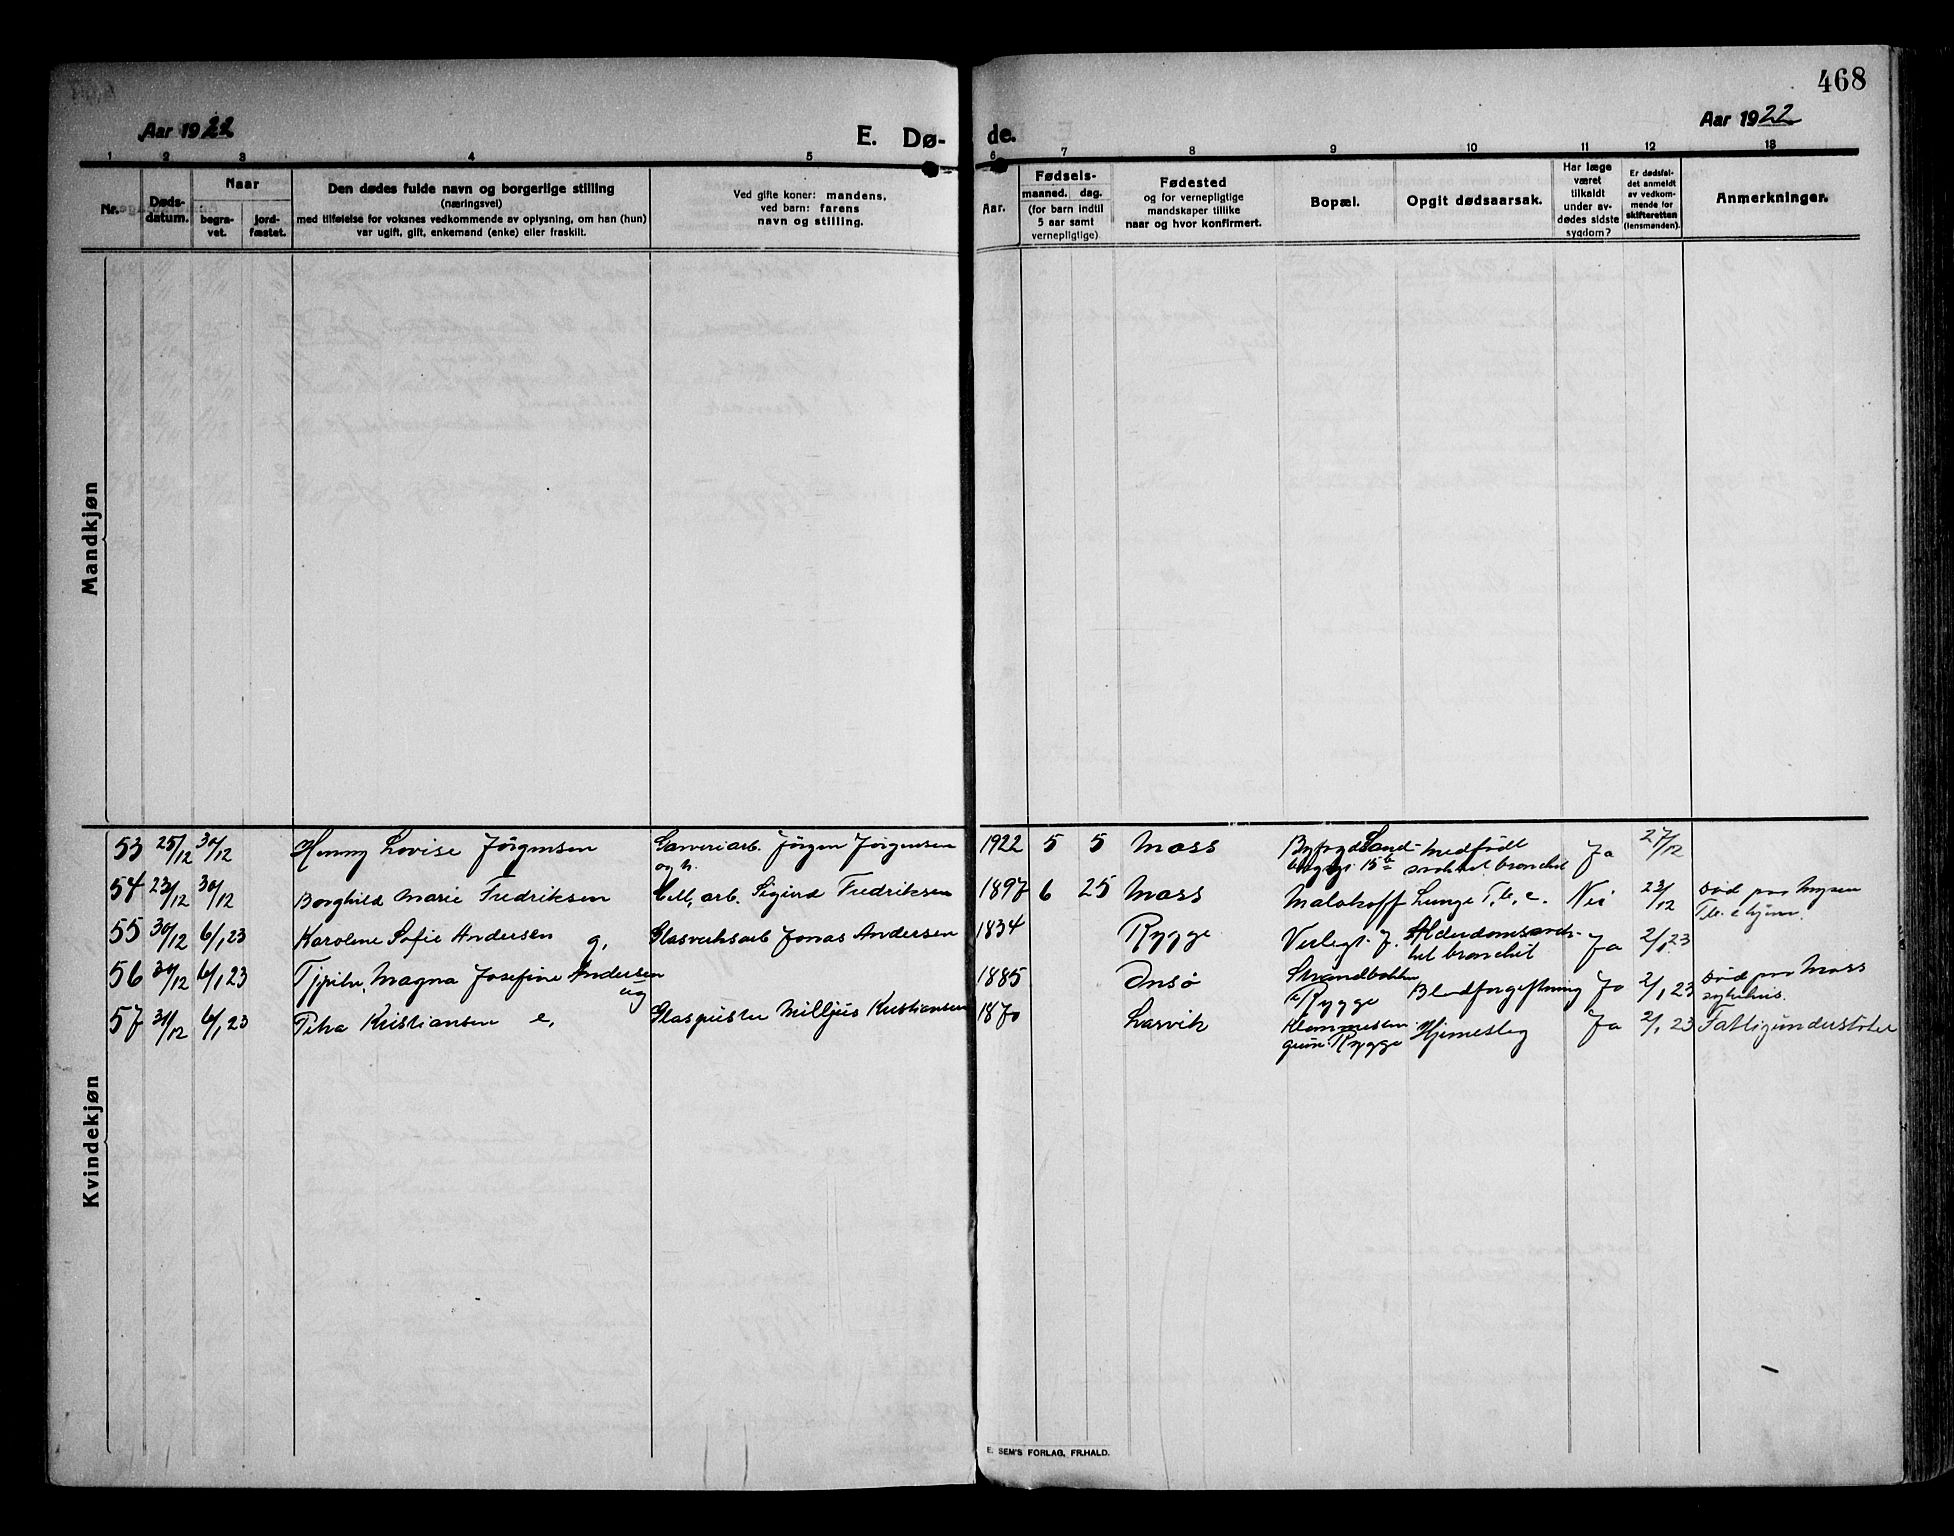 468
Aar 1922
E. Dø-
de.
Aar 1922
1 2 3 4 5 6 7 8 9 10 11 12 13
Nr.
Døds-
datum.
Naar
begra-
vet.
jord-
fæstet.
Den dødes fulde navn og borgerlige stilling
(næringsvei)
med tilføielse for voksnes vedkommende av oplysning, om han (hun)
var ugift, gift, enkemand (enke) eller fraskilt.
Ved gifte koner: mandens,
ved barn: farens
navn og stilling.
Fødsels-
Aar.
maaned. dag.
(for barn indtil
5 aar samt
vernepligtige)
Fødested
og for vernepligtige
mandskaper tillike
naar og hvor konfirmert.
Bopæl.
Opgit dødsaarsak.
Har læge
været
tilkaldt
under av-
dødes sidste
sygdom?
Er dødsfal-
det anmeldt
av vedkom-
mende for
skifteretten
(lensmanden).
Anmerkninger.
Mandkjøn
Kvindekjøn
53 25/12 30/12 Henny Lovise Jörgensen Garveriarb. Jörgen Jörgensen 1922 5 5 Moss Sand- medfödt Ja 27/12
og h. 15b bronchit
54 23/12 30/12 Borghild Marie Fredriksen Cell. arb. Sigurd Fredriksen 1897 6 25 Moss Malakoff Lunge T.b.c. Nei 23/12 död paa Mysen
Tb.c hjem.
55 30/12 6/1 23 Karoline Sofie Andersen g, Glasverksarb Jonas Andersen 1834 Rygge Verlegt. g. Alderdomssvak- Ja 2/1 23
het bronchit
56 30/12 6/1 23 Tjpike, Magna Josefine Andersen 1885 Onsö Strandbakken Blodforgiftning Ja 2/1 23 död paa Moss
ug Rygge sykehus.
57 31/12 6/1 23 Petra Kristiansen e, Glaspuster Milljus Kristiansen 1870 Larvik Hjerneslag Ja 2/1 23 Fattigunderstöttet
Rygge
E. SEM'S FORLAG, FR.HALD.